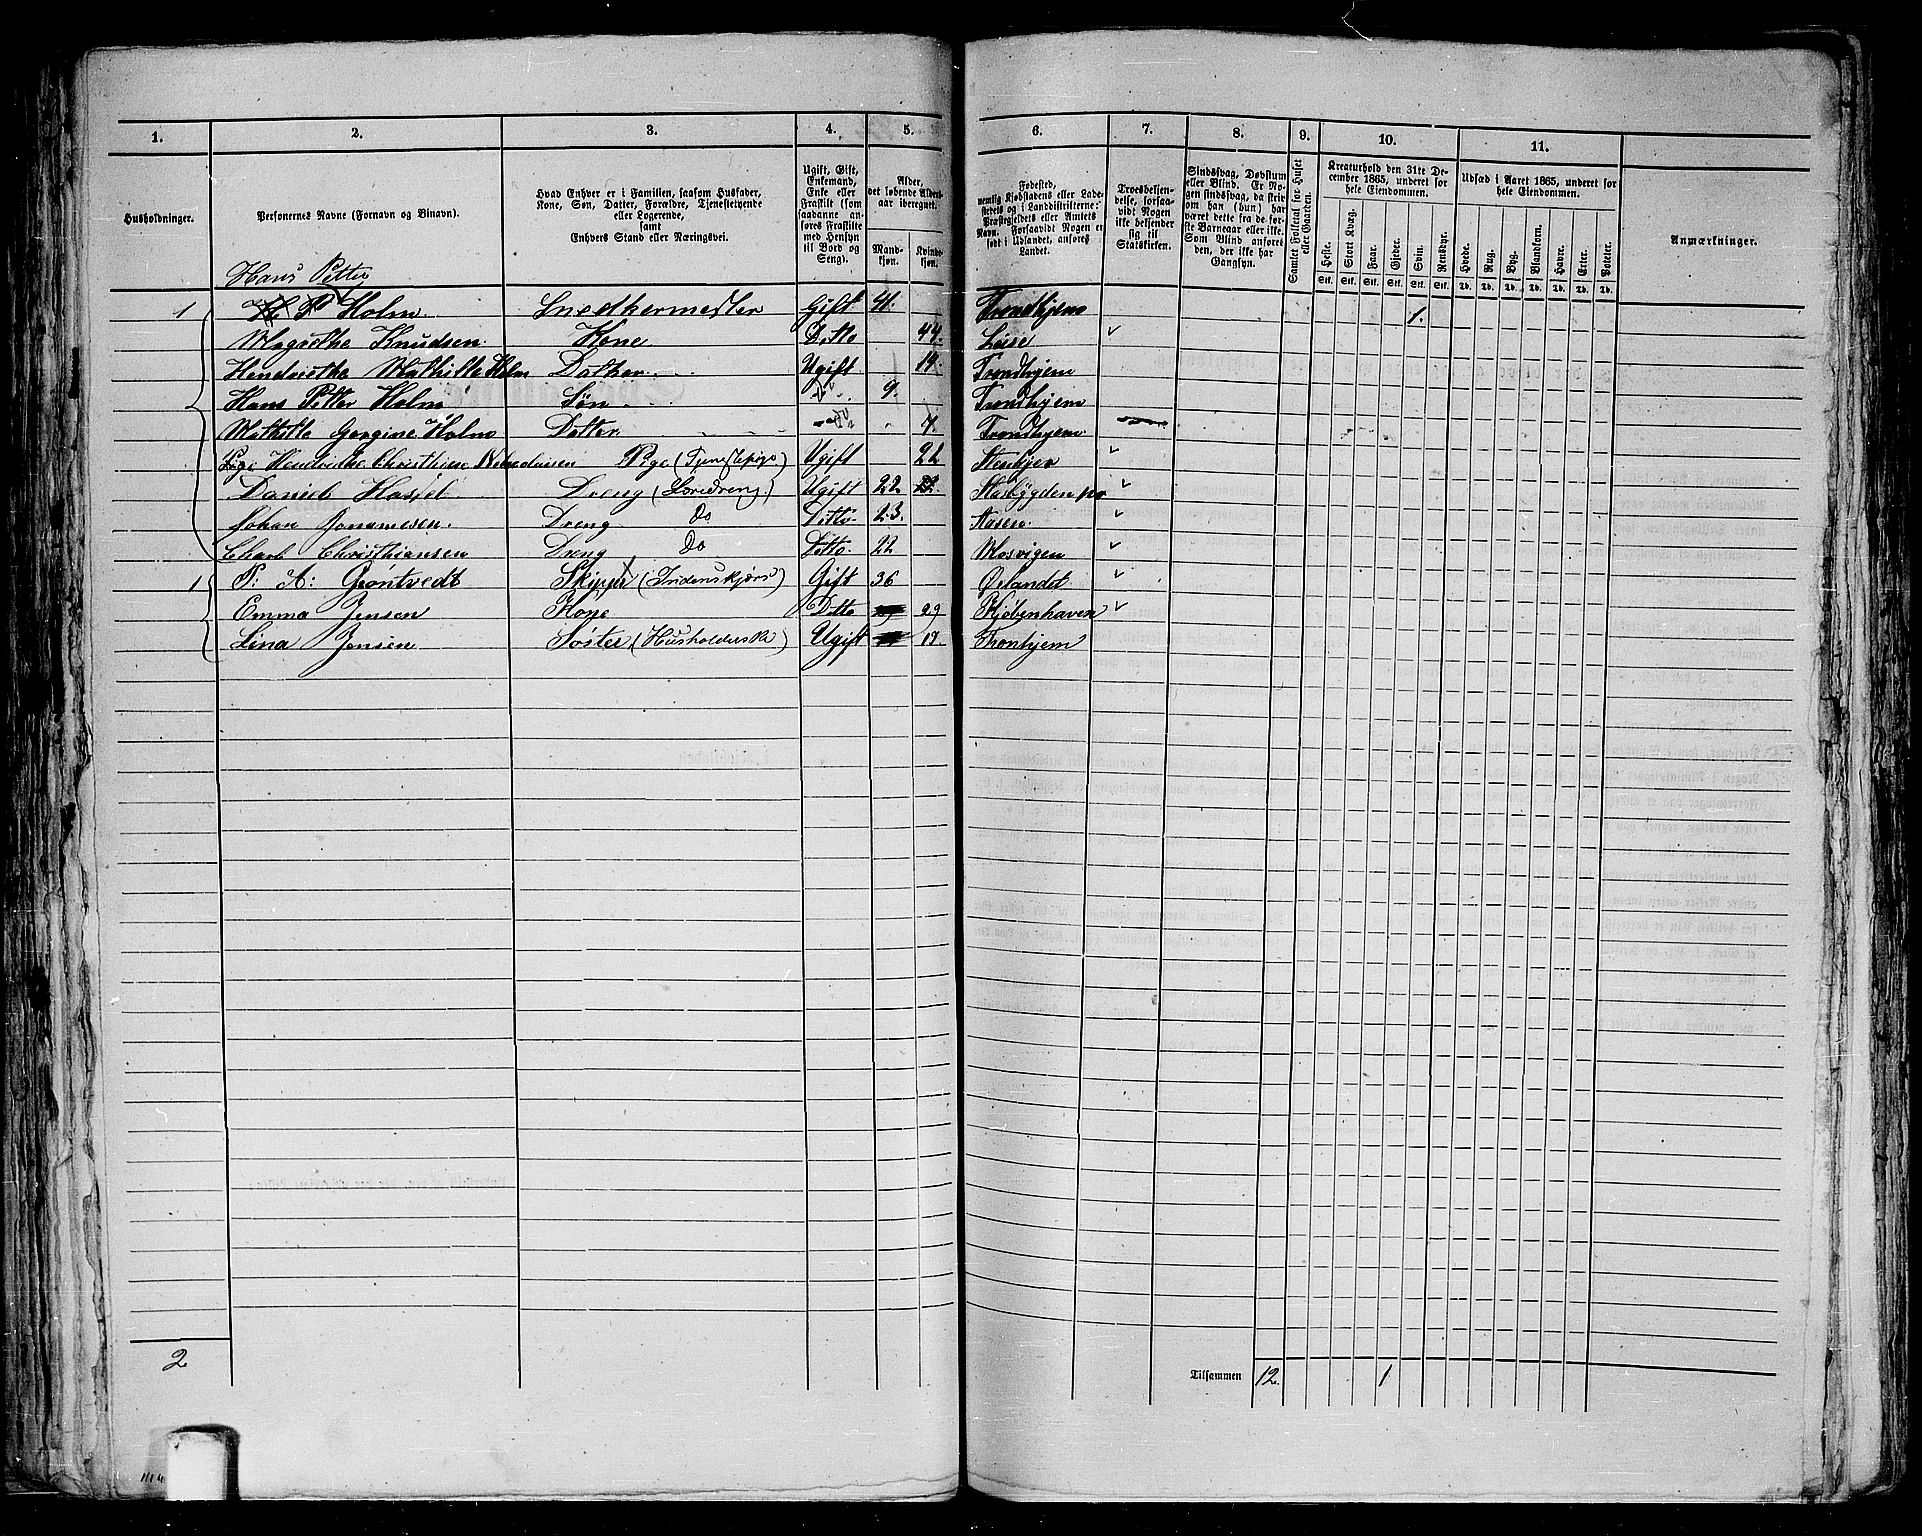 1. 2. 3. 4. 5. 6. 7. 8. 9. 10. 11.
Husholdninger.
Personernes Navne (Fornavn og Binavn).
Hvad Enhver er i Familien, saasom Husfader,
Kone, Søn, Datter, Forældre, Tjenestetyende
eller Logerende,
samt
Enhvers Stand eller Næringsvei.
Ugift, Gift,
Enkemand,
Enke eller
Fraskilt (som
saadanne an-
føres Fraskilte
med Hensyn
til Bord og
Seng).
Alder,
det løbende Alders-
aar iberegnet.
Mand-
kjøn.
Kvinde-
kjøn.
Fødested,
nemlig Kjøbstadens eller Lade-
stedets og i Landdistrikterne:
Præstegjeldets eller Amtets
Navn. Forsaavidt Nogen er
født i Udlandet, anføres
Landet.
Troesbekjen-
delse, forsaa-
vidt Nogen
ikke bekjender
sig til
Statskirken.
Sindssvag, Døvstum
eller Blind. Er No-
gen sindssvag, da skriv
om han (hun) har
været dette fra de før-
ste Barneaar eller ikke.
Som Blind anføres
den, der ikke har
Gangsyn.
Samlet Folketal for Huset
eller Gaarden.
Kreaturhold den 31te De-
cember 1865, underet for
hele Eiendommen.
Heste. Stort Kvæg. Faar. Gjeder. Svin. Rensdyr.
Stk. Stk. Stk. Stk. Stk. Stk.
Udsæd i Aaret 1865, underet for
hele Eiendommen.
Hvede. Rug. Byg. Blandkorn. Havre. Erter. Poteter.
Td. Td. Td. Td. Td. Td. Td.
Anmærkninger.
Hans Petter
1 H P Holm Snedkermester Gift 41. Trondhjem 1.
Magrethe Knudsen Kone Ditto 44. ✓
Hendrikke Mathilde Holm Datter Ugift 14. Trondhjem
Hans Petter Holm Søn 9. Trondhjem
Mathilde Gørgine Holm Datter 7. Trondhjem
Pige Hendrikke Christhine Pige (Tjenestepige) Ugift 22 Stenkjer ✓
Daniel Hassel Dreng (Læredreng.) Ugift 22 ✓
Johan Johannesen. Dreng Do Ditto. 23. Aasen ✓
Charl Christhiansen Dreng Do Ditto. 22 Mosvigen ✓
1 P: A: Grøntvedt Skipper (Indenskjærs) Gift 36 Ørlandet ✓
Emma Jensen Kone Ditto 29 Kjøbenhaven ✓
Lina Jensen Søster (Husholderske) Ugift 17. Tronhjem
2
Tilsammen 12. 1